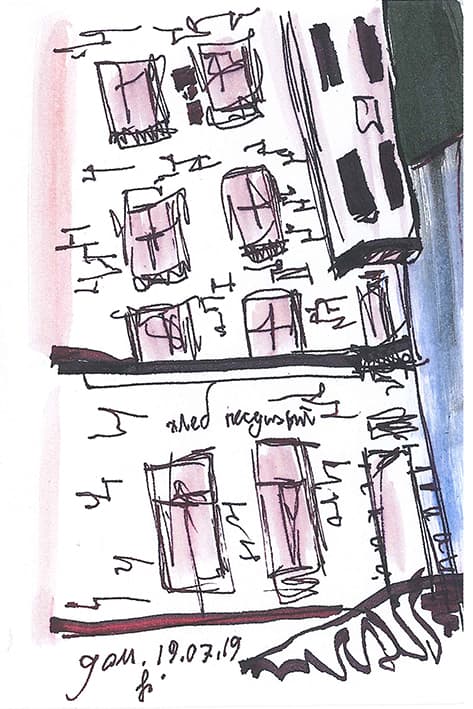 хлеб насущный
дом. 19.07.19